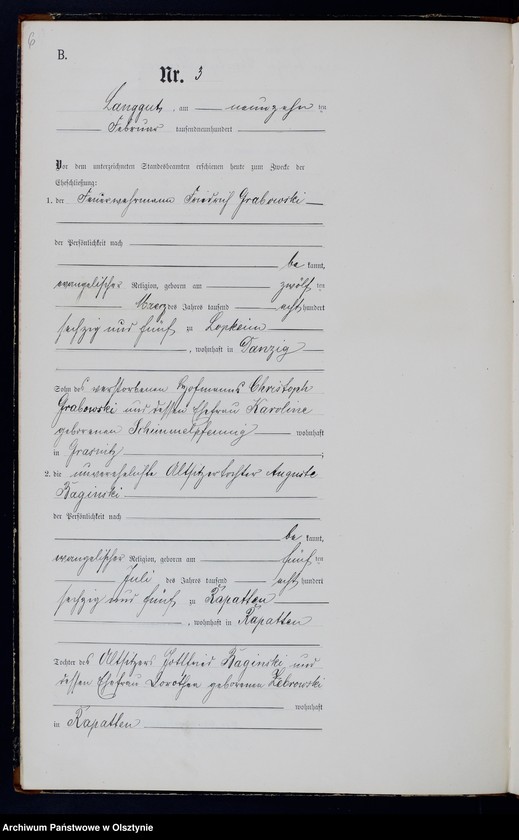 6
B.
Nr. 3
Langgut, am neunzehn ten
Februar tausendneunhundert
Vor dem unterzeichneten Standesbeamten erschienen heute zum Zwecke der
Eheschließung:
1. der Feuerwehrmann Friedrich Grabowski
der Persönlichkeit nach
be kannt,
evangelischer Religion, geboren am zwölf ten
März des Jahres tausend acht hundert
sechzig und fünf zu Lopkeim
, wohnhaft in Danzig
Sohn des verstorbenen Hofmanns Christoph
Grabowski und dessen Ehefrau Karoline
geborenen Schimmelpfennig wohnhaft
in Grasnitz ;
2. die unverehelichte Altsitzertochter Auguste
Baginski
der Persönlichkeit nach
be kannt,
evangelischer Religion, geboren am fünf ten
Juli des Jahres tausend acht hundert
sechzig und fünf zu Rapatten
, wohnhaft in Rapatten
Tochter des Altsitzers Gottlieb Baginski und
dessen Ehefrau Dorothea geborenen Zebrowski
wohnhaft
in Rapatten
Archiwum Państwowe w Olsztynie